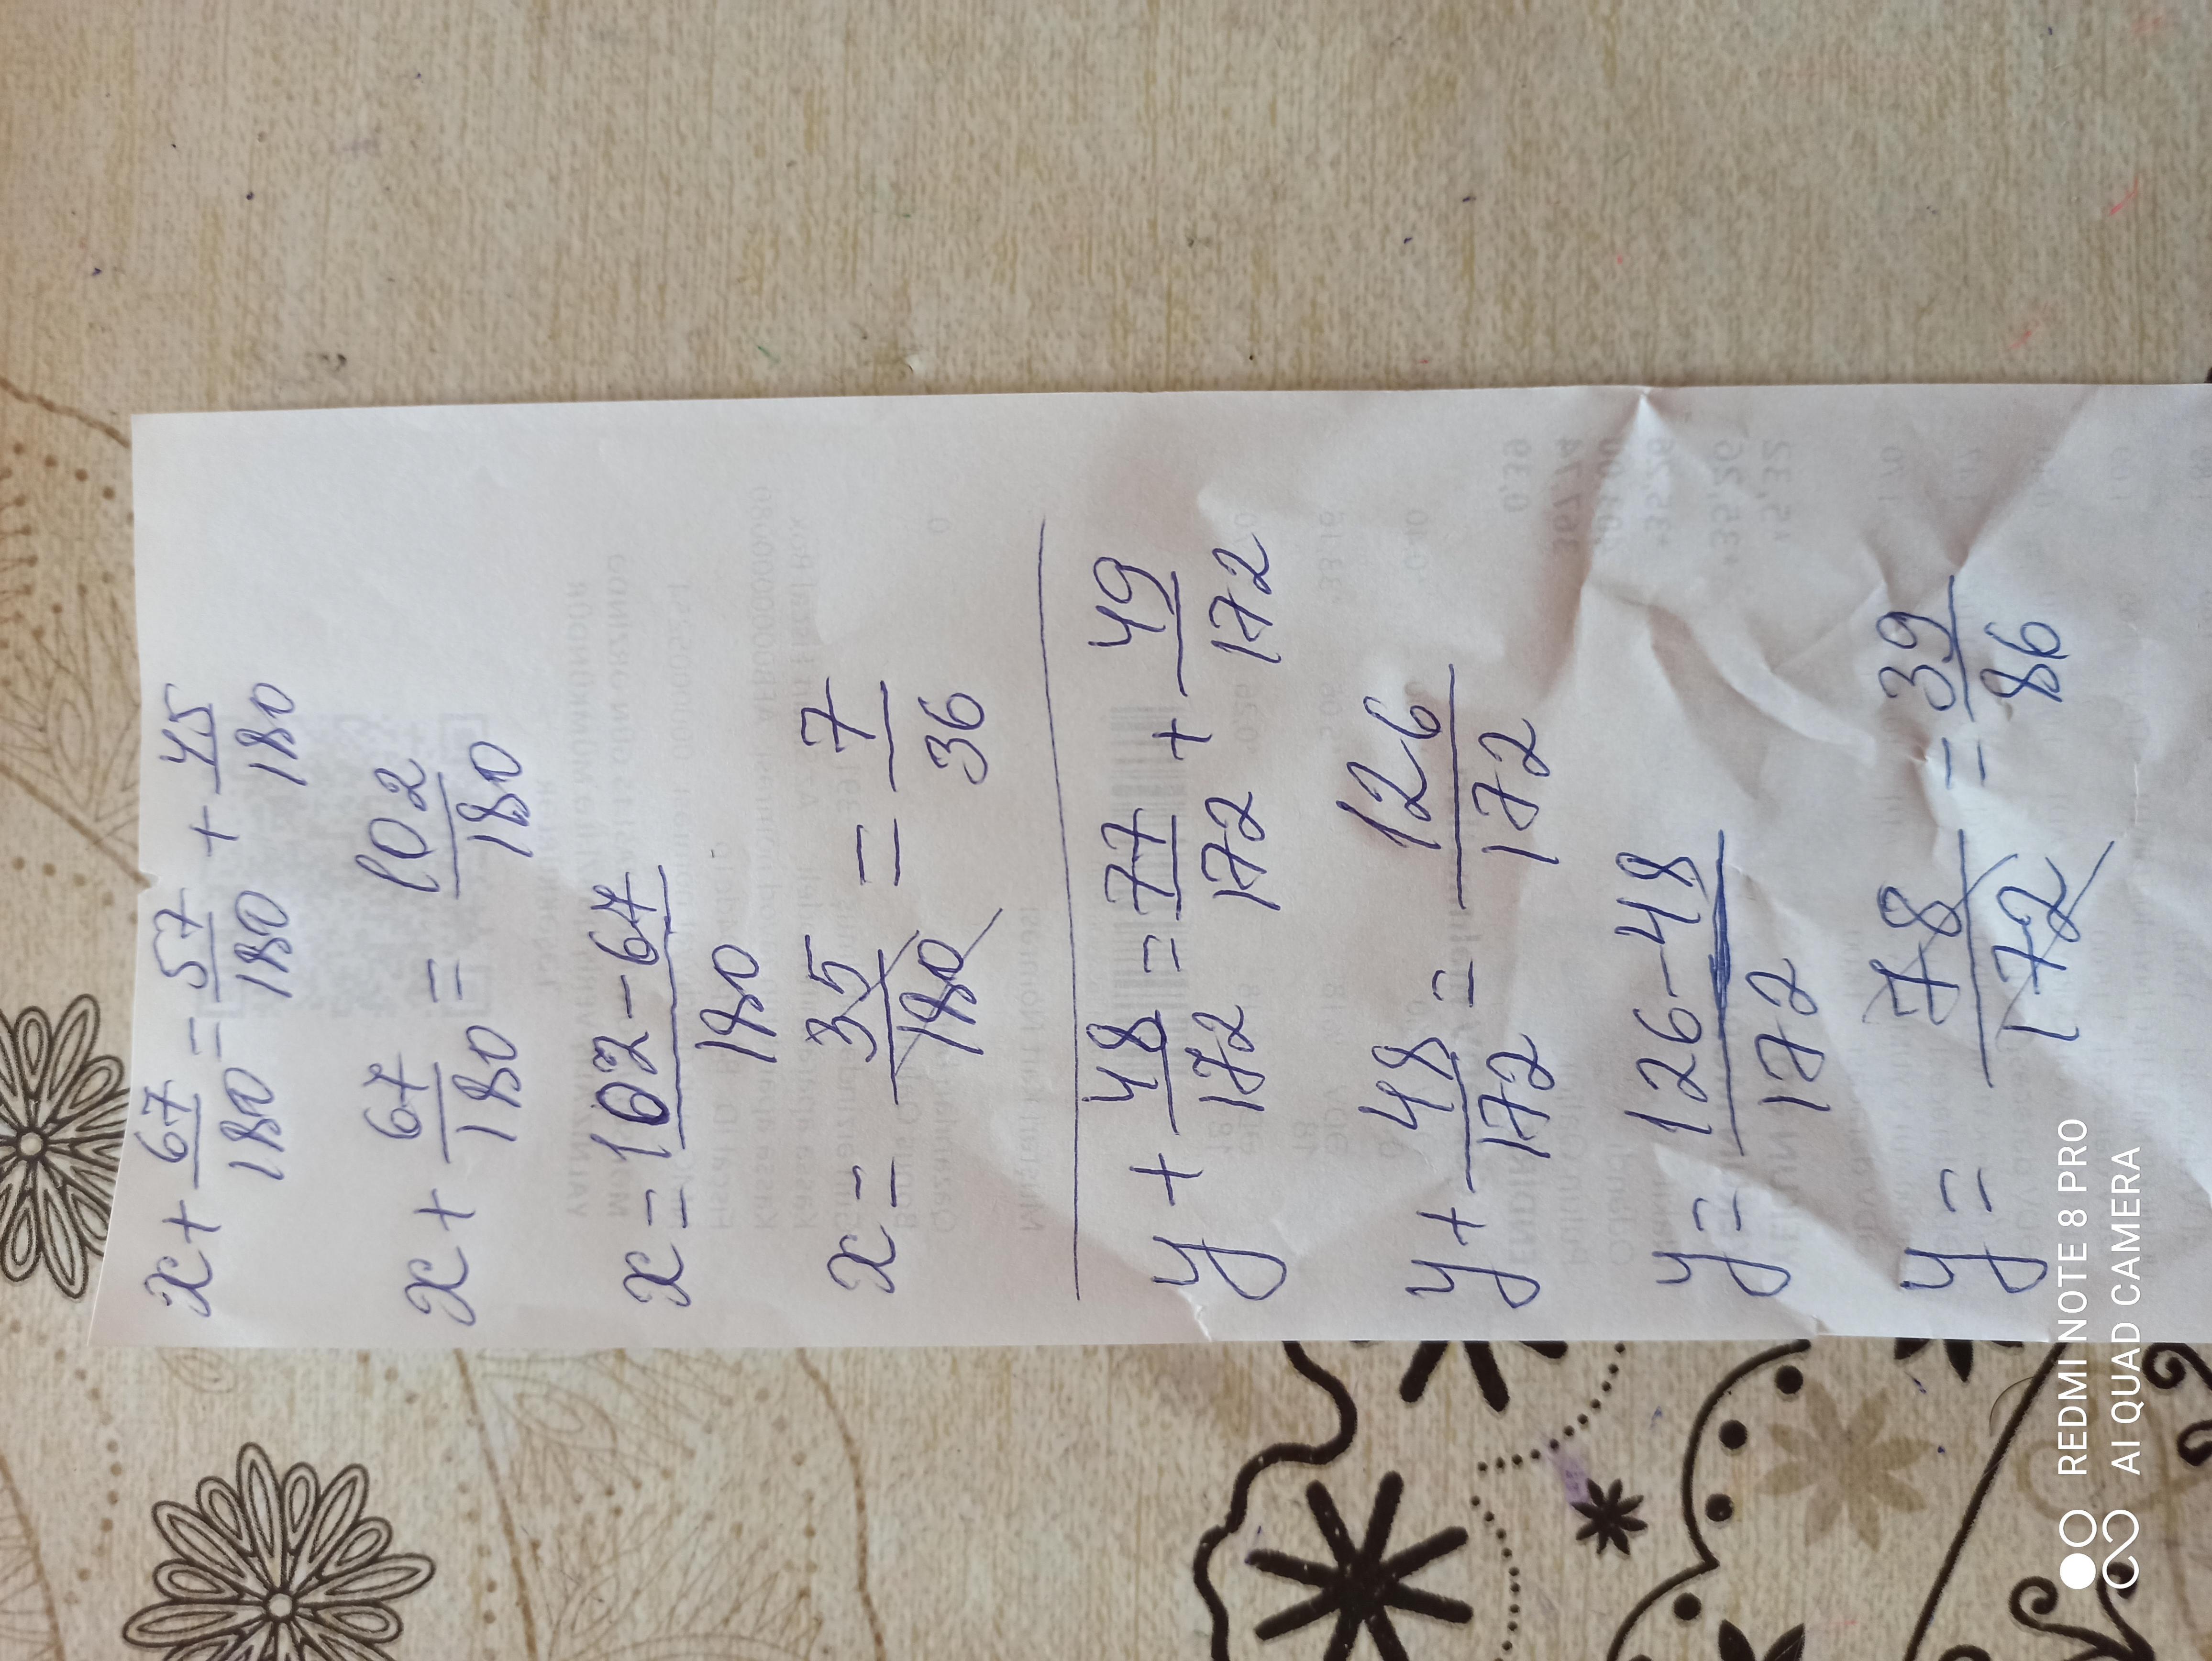 x + 67/180 = 57/180 + 45/180
x + 67/180 = 102/180
x = 102-67/180
x = 35/180 = 7/36
y + 48/172 = 77/172 + 49/172
y + 48/172 = 126/172
y = 126-48/172
y = 78/172 = 39/86
REDMI NOTE 8 PRO
AI QUAD CAMERA